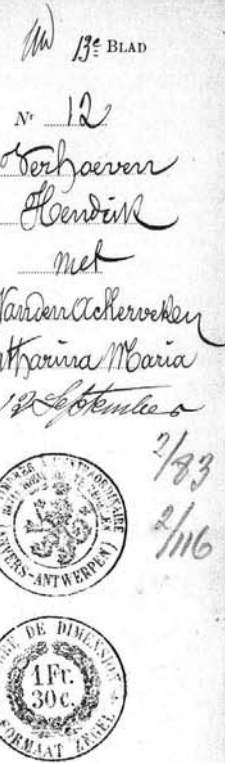 13e BLAD
Nr 12
Verhoeven
Hendrik
met
Vanden Ackerveken
Maria
12 September
2/83
2/116
ANVERS-ANTWERPEN
DE DIMENSION
1Fr.
30c.
FORMAAT ZEGEL